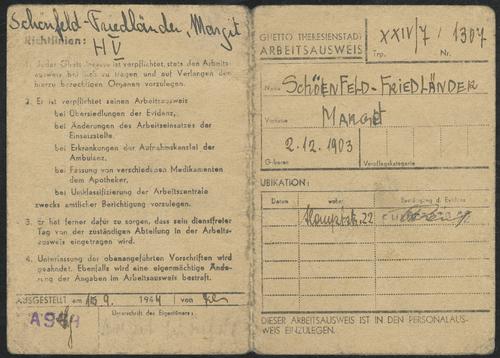 Schönfeld-Friedländer, Margit
HV
Richtlinien:
1. Jeder Ghettoinsasse ist verpflichtet, stets den Arbeits-
ausweis bei sich zu tragen und auf Verlangen den
hierzu berechtigten Organen vorzulegen.
2. Er ist verpflichtet seinen Arbeitsausweis
bei Übersiedlungen der Evidenz,
bei Änderungen des Arbeitseinsatzes der
Einsatzstelle,
bei Erkrankungen der Aufnahmskanzlei der
Ambulanz,
bei Fassung von verschiedenen Medikamenten
dem Apotheker,
bei Umklassifizierung der Arbeitszentrale
zwecks amtlicher Berichtigung vorzulegen.
3. Er hat ferner dafür zu sorgen, dass sein dienstfreier
Tag von der zuständigen Abteilung in der Arbeits-
ausweis eingetragen wird.
4. Unterlassung der obenangeführten Vorschriften wird
geahndet. Ebenfalls wird eine eigenmächtige Ände-
rung der Angaben im Arbeitsausweis bestraft.
AUSGESTELLT am 15.9. 1944 von
Unterschrift des Eigentümers:
GHETTO THERESIENSTADT
ARBEITSAUSWEIS
XXIV/7 / 1307
Trp. Nr.
Name SCHÖENFELD-FRIEDLÄNDER
Vorname MARGIT
2.12.1903
Geboren Verpflegskategorie
UBIKATION:
Datum wohnt Bestätigung d. Evidenz
Hauptstr. 22
DIESER ARBEITSAUSWEIS IST IN DEN PERSONALAUS-
WEIS EINZULEGEN.